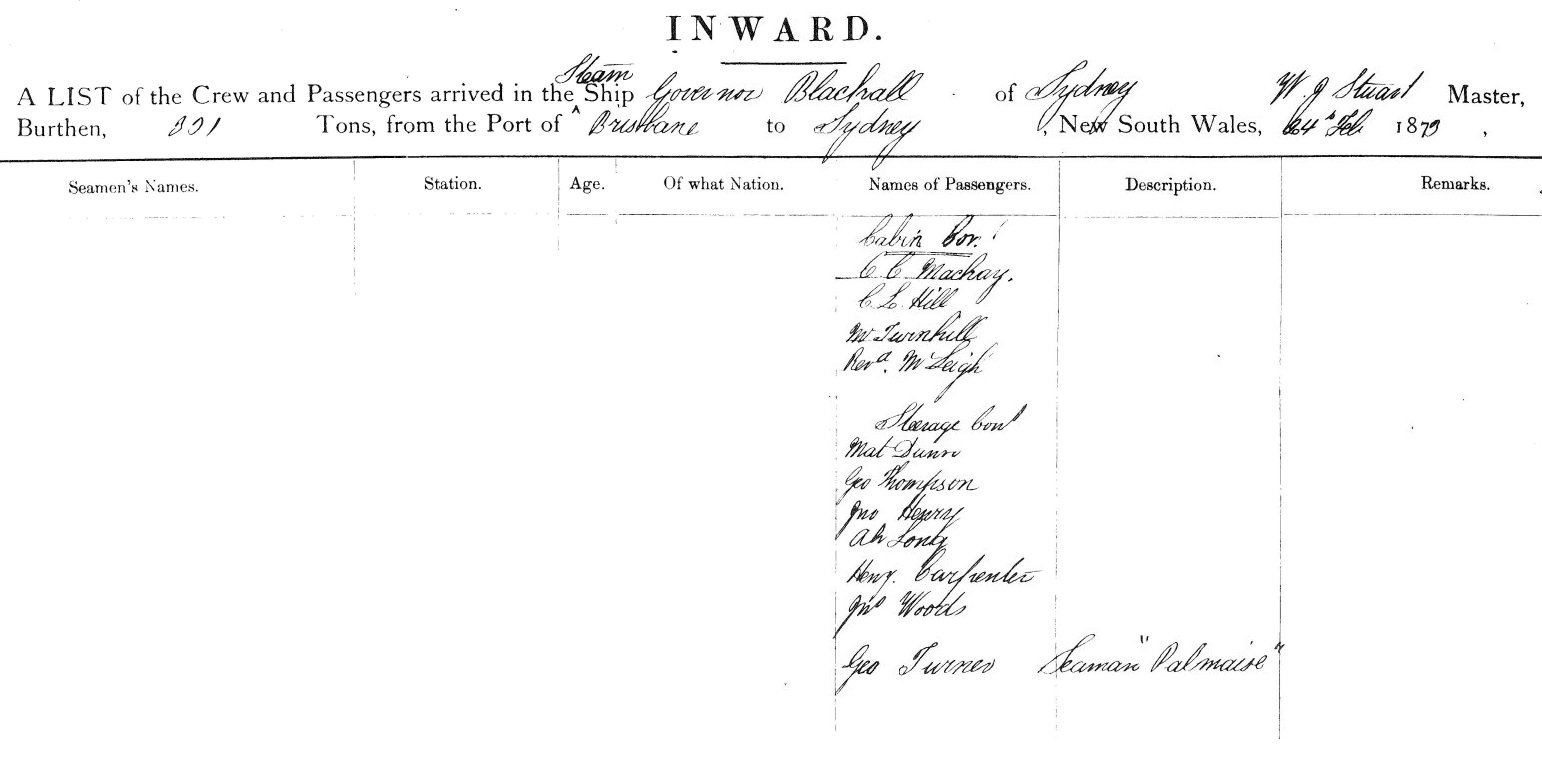 INWARD.
Steam
A LIST of the Crew and Passengers arrived in the Ship Governor Blackall of Sydney W J Stuart Master,
Burthen, 331 Tons, from the Port of ^ Brisbane to Sydney, New South Wales, 24th Feb 1873,
Seamen's Names. Station. Age. Of what Nation. Names of Passengers. Description. Remarks.
Cabin
C C Mackay.
C L Hill
Mr Turnhill
Revd. McLeigh
Steerage
Mat Dunn
Geo Thompson
Jno Henry
Ah Long
Heny. Carpenter
Jno Woods
Geo Turner Seaman "Palmaise"